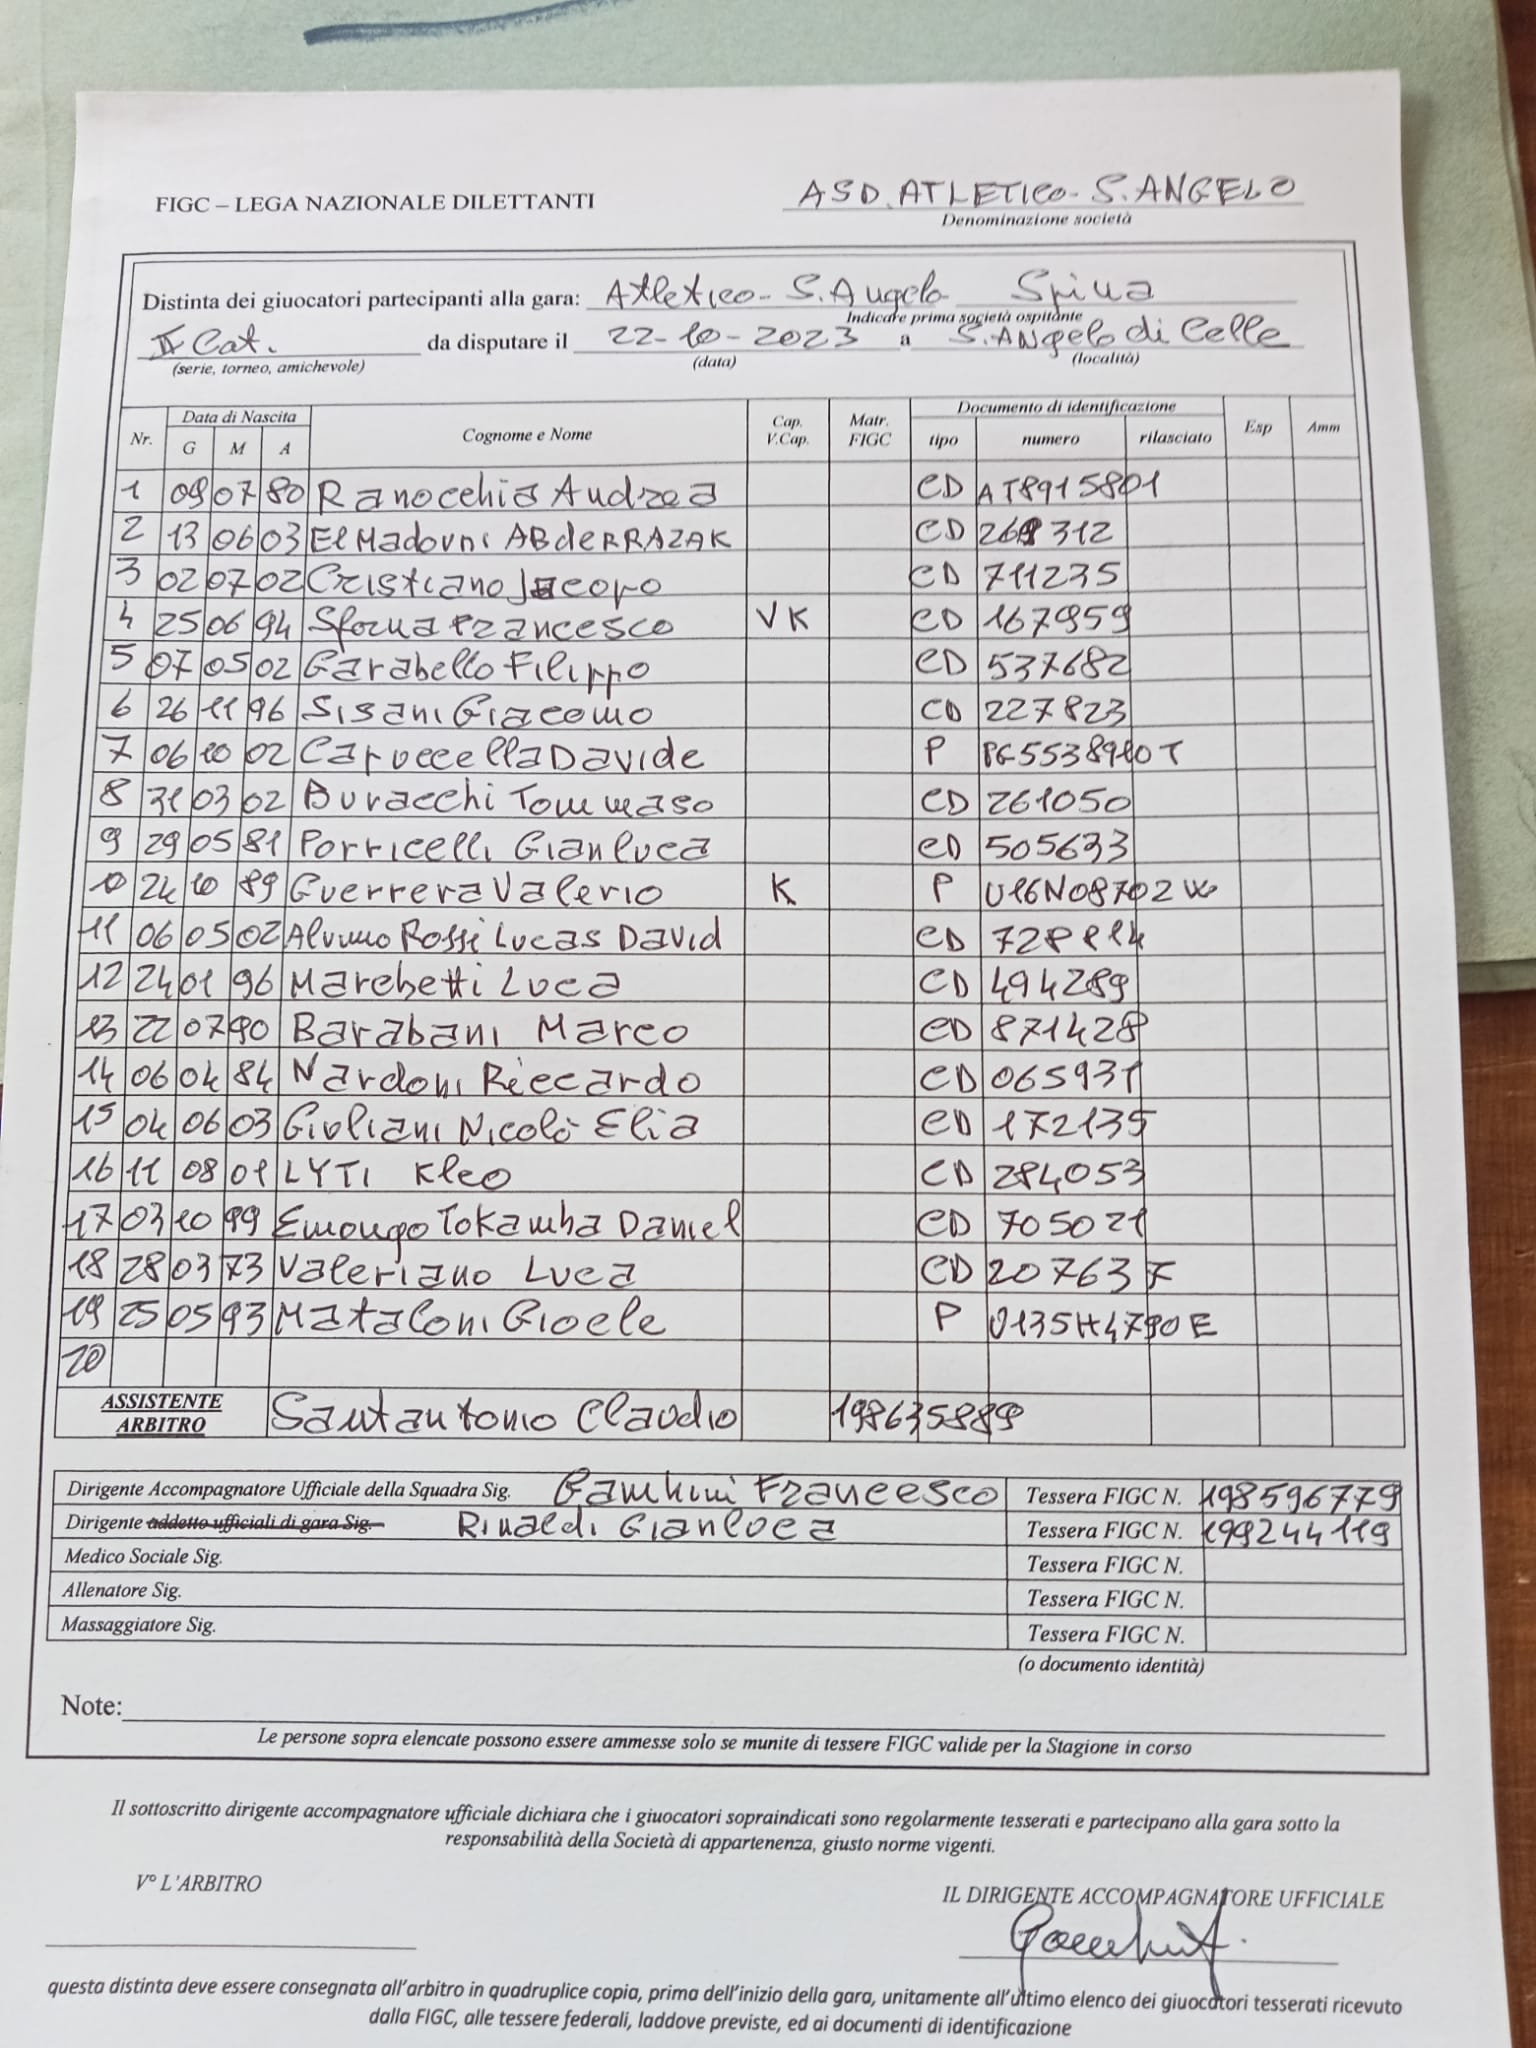 FIGC – LEGA NAZIONALE DILETTANTI ASD. ATLETICO - S. ANGELO
Denominazione società
Distinta dei giuocatori partecipanti alla gara: Atletico - S. Angelo Spina
Indicare prima società ospitante
II Cat. da disputare il 22-10-2023 a S. ANgelo di Celle
(serie, torneo, amichevole) (data) (località)
Nr. Data di Nascita Cognome e Nome Cap. V.Cap. Matr. FIGC Documento di identificazione Esp Amm
G M A tipo numero rilasciato
1 09 07 80 Ranocchia Andrea CD AT8915801
2 13 06 03 El Madouni ABdeRRAZAK CD 312
3 02 07 02 Cristiano Jacopo CD 711235
4 25 06 94 Sforna Francesco VK CD 167959
5 07 05 02 Garabello Filippo CD 537682
6 26 11 96 Sisani Giacomo CD 227823
7 06 10 02 Caroccella Davide P PG5538910T
8 31 03 02 Buracchi Tommaso CD 261050
9 29 05 81 Porricelli Gianluca CD 505633
10 24 10 89 Guerrera Valerio K P U16N08702W
11 06 05 02 Rossi Lucas David CD
12 24 01 96 Marchetti Luca CD 494289
13 22 07 90 Barabani Marco CD 871428
14 06 04 84 Nardoni Riccardo CD 065931
15 04 06 03 Giuliani Nicolò Elia CD 172135
16 11 08 01 LYTI Kleo CD 284053
17 03 10 99 Emongo Tokamba Daniel CD 705021
18 28 03 73 Valeriano Luca CD 20763
19 25 05 93 Mataloni Gioele P U135H4790E
20
ASSISTENTE ARBITRO Santantonio Claudio 198635889
Dirigente Accompagnatore Ufficiale della Squadra Sig. Gambini Francesco Tessera FIGC N. 198596779
Dirigente addetto ufficiali di gara Sig. Rinaldi Gianluca Tessera FIGC N. 199244119
Medico Sociale Sig. Tessera FIGC N.
Allenatore Sig. Tessera FIGC N.
Massaggiatore Sig. Tessera FIGC N.
(o documento identità)
Note:
Le persone sopra elencate possono essere ammesse solo se munite di tessere FIGC valide per la Stagione in corso
Il sottoscritto dirigente accompagnatore ufficiale dichiara che i giuocatori sopraindicati sono regolarmente tesserati e partecipano alla gara sotto la
responsabilità della Società di appartenenza, giusto norme vigenti.
V° L'ARBITRO IL DIRIGENTE ACCOMPAGNATORE UFFICIALE
questa distinta deve essere consegnata all'arbitro in quadruplice copia, prima dell'inizio della gara, unitamente all'ultimo elenco dei giuocatori tesserati ricevuto
dalla FIGC, alle tessere federali, laddove previste, ed ai documenti di identificazione